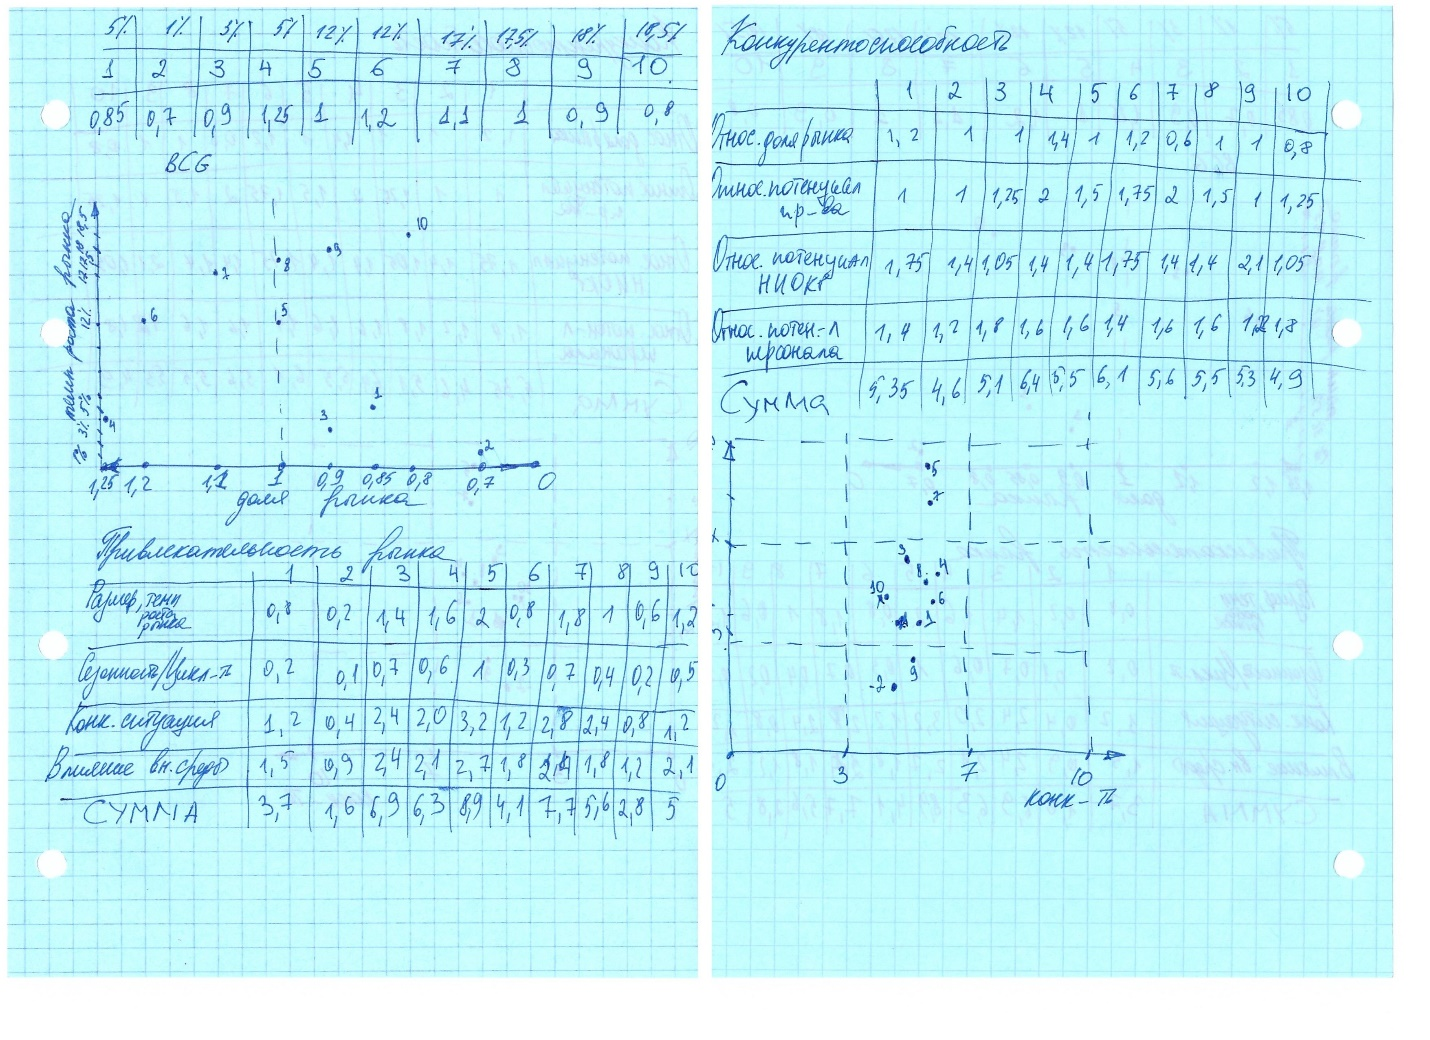 5% 1% 3% 5% 12% 12% 17% 17,5% 18% 18,5%
1 2 3 4 5 6 7 8 9 10
0,85 0,7 0,9 1,25 1 1,2 1,1 1 0,9 0,8
BCG
темп роста рынка
1% 3% 5% 12%
10
9
8
7
6
5
1
3
4
2
1,25 1,2 1,1 1 0,9 0,85 0,8 0,7 0
доля рынка
Привлекательность рынка
1 2 3 4 5 6 7 8 9 10
Размер, темп роста рынка 0,8 0,2 1,4 1,6 2 0,8 1,8 1 0,6 1,2
Сезонность/Цикл-ть 0,2 0,1 0,7 0,6 1 0,3 0,7 0,4 0,2 0,5
Конк. ситуация 1,2 0,4 2,4 2,0 3,2 1,2 2,8 2,4 0,8 1,2
Влияние вн. среды 1,5 0,9 2,4 2,1 2,7 1,8 2,4 1,8 1,2 2,1
СУММА 3,7 1,6 6,9 6,3 8,9 4,1 7,7 5,6 2,8 5
Конкурентоспособность
1 2 3 4 5 6 7 8 9 10
Относ. доля рынка 1,2 1 1 1,4 1 1,2 0,6 1 1 0,8
Относ. потенциал пр-ва 1 1 1,25 2 1,5 1,75 2 1,5 1 1,25
Относ. потенциал НИОКР 1,75 1,4 1,05 1,4 1,4 1,75 1,4 1,4 2,1 1,05
Относ. потен-л персонала 1,4 1,2 1,8 1,6 1,6 1,4 1,6 1,6 1,2 1,8
Сумма 5,35 4,6 5,1 6,4 5,5 6,1 5,6 5,5 5,3 4,9
5
7
3
8 4
10
6
1
9
2
0 3 7 10
конк-ть